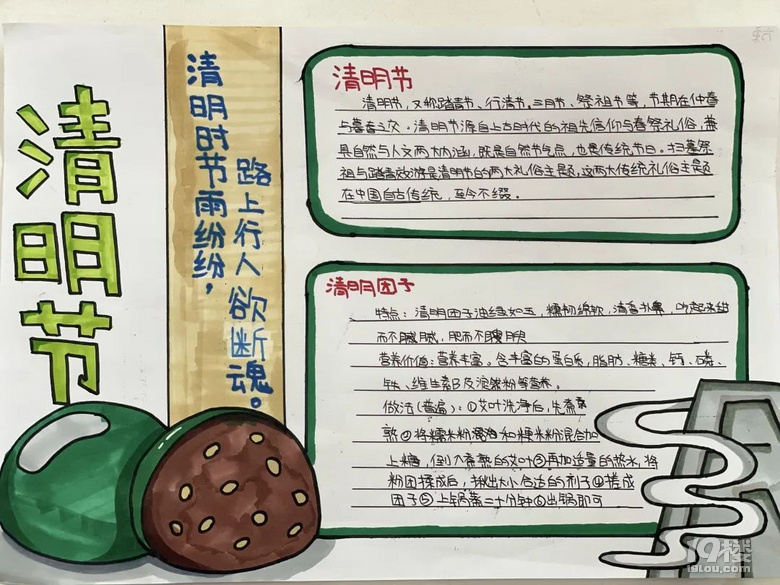 清明节
清明时节雨纷纷，
路上行人欲断魂。
清明节
清明节，又称踏青节、行清节、三月节、祭祖节等，节期在仲春
与暮春之交。清明节源自上古时代的祖先信仰与春祭礼俗，兼
具自然与人文两大内涵，既是自然节气点，也是传统节日。扫墓祭
祖与踏青郊游是清明节的两大礼俗主题，这两大传统礼俗主题
在中国自古传统，至今不缀。
清明团子
特点：清明团子油绿如玉，糯韧绵软，清香扑鼻，吃起来甜
而不腻，肥而不腴
营养价值：营养丰富。含丰富的蛋白质，脂肪、糖类、钙、磷、
铁、维生素B及淀粉等营养。
做法（普遍）：①艾叶洗净后，先煮
熟②将糯米粉和粳米粉混合加
上糖，倒入煮熟的艾叶③再加适量的热水，将
粉团揉成后，揪出大小合适的剂子④搓成
团子⑤上锅蒸二十分钟⑥出锅即可
19楼
19lou.com